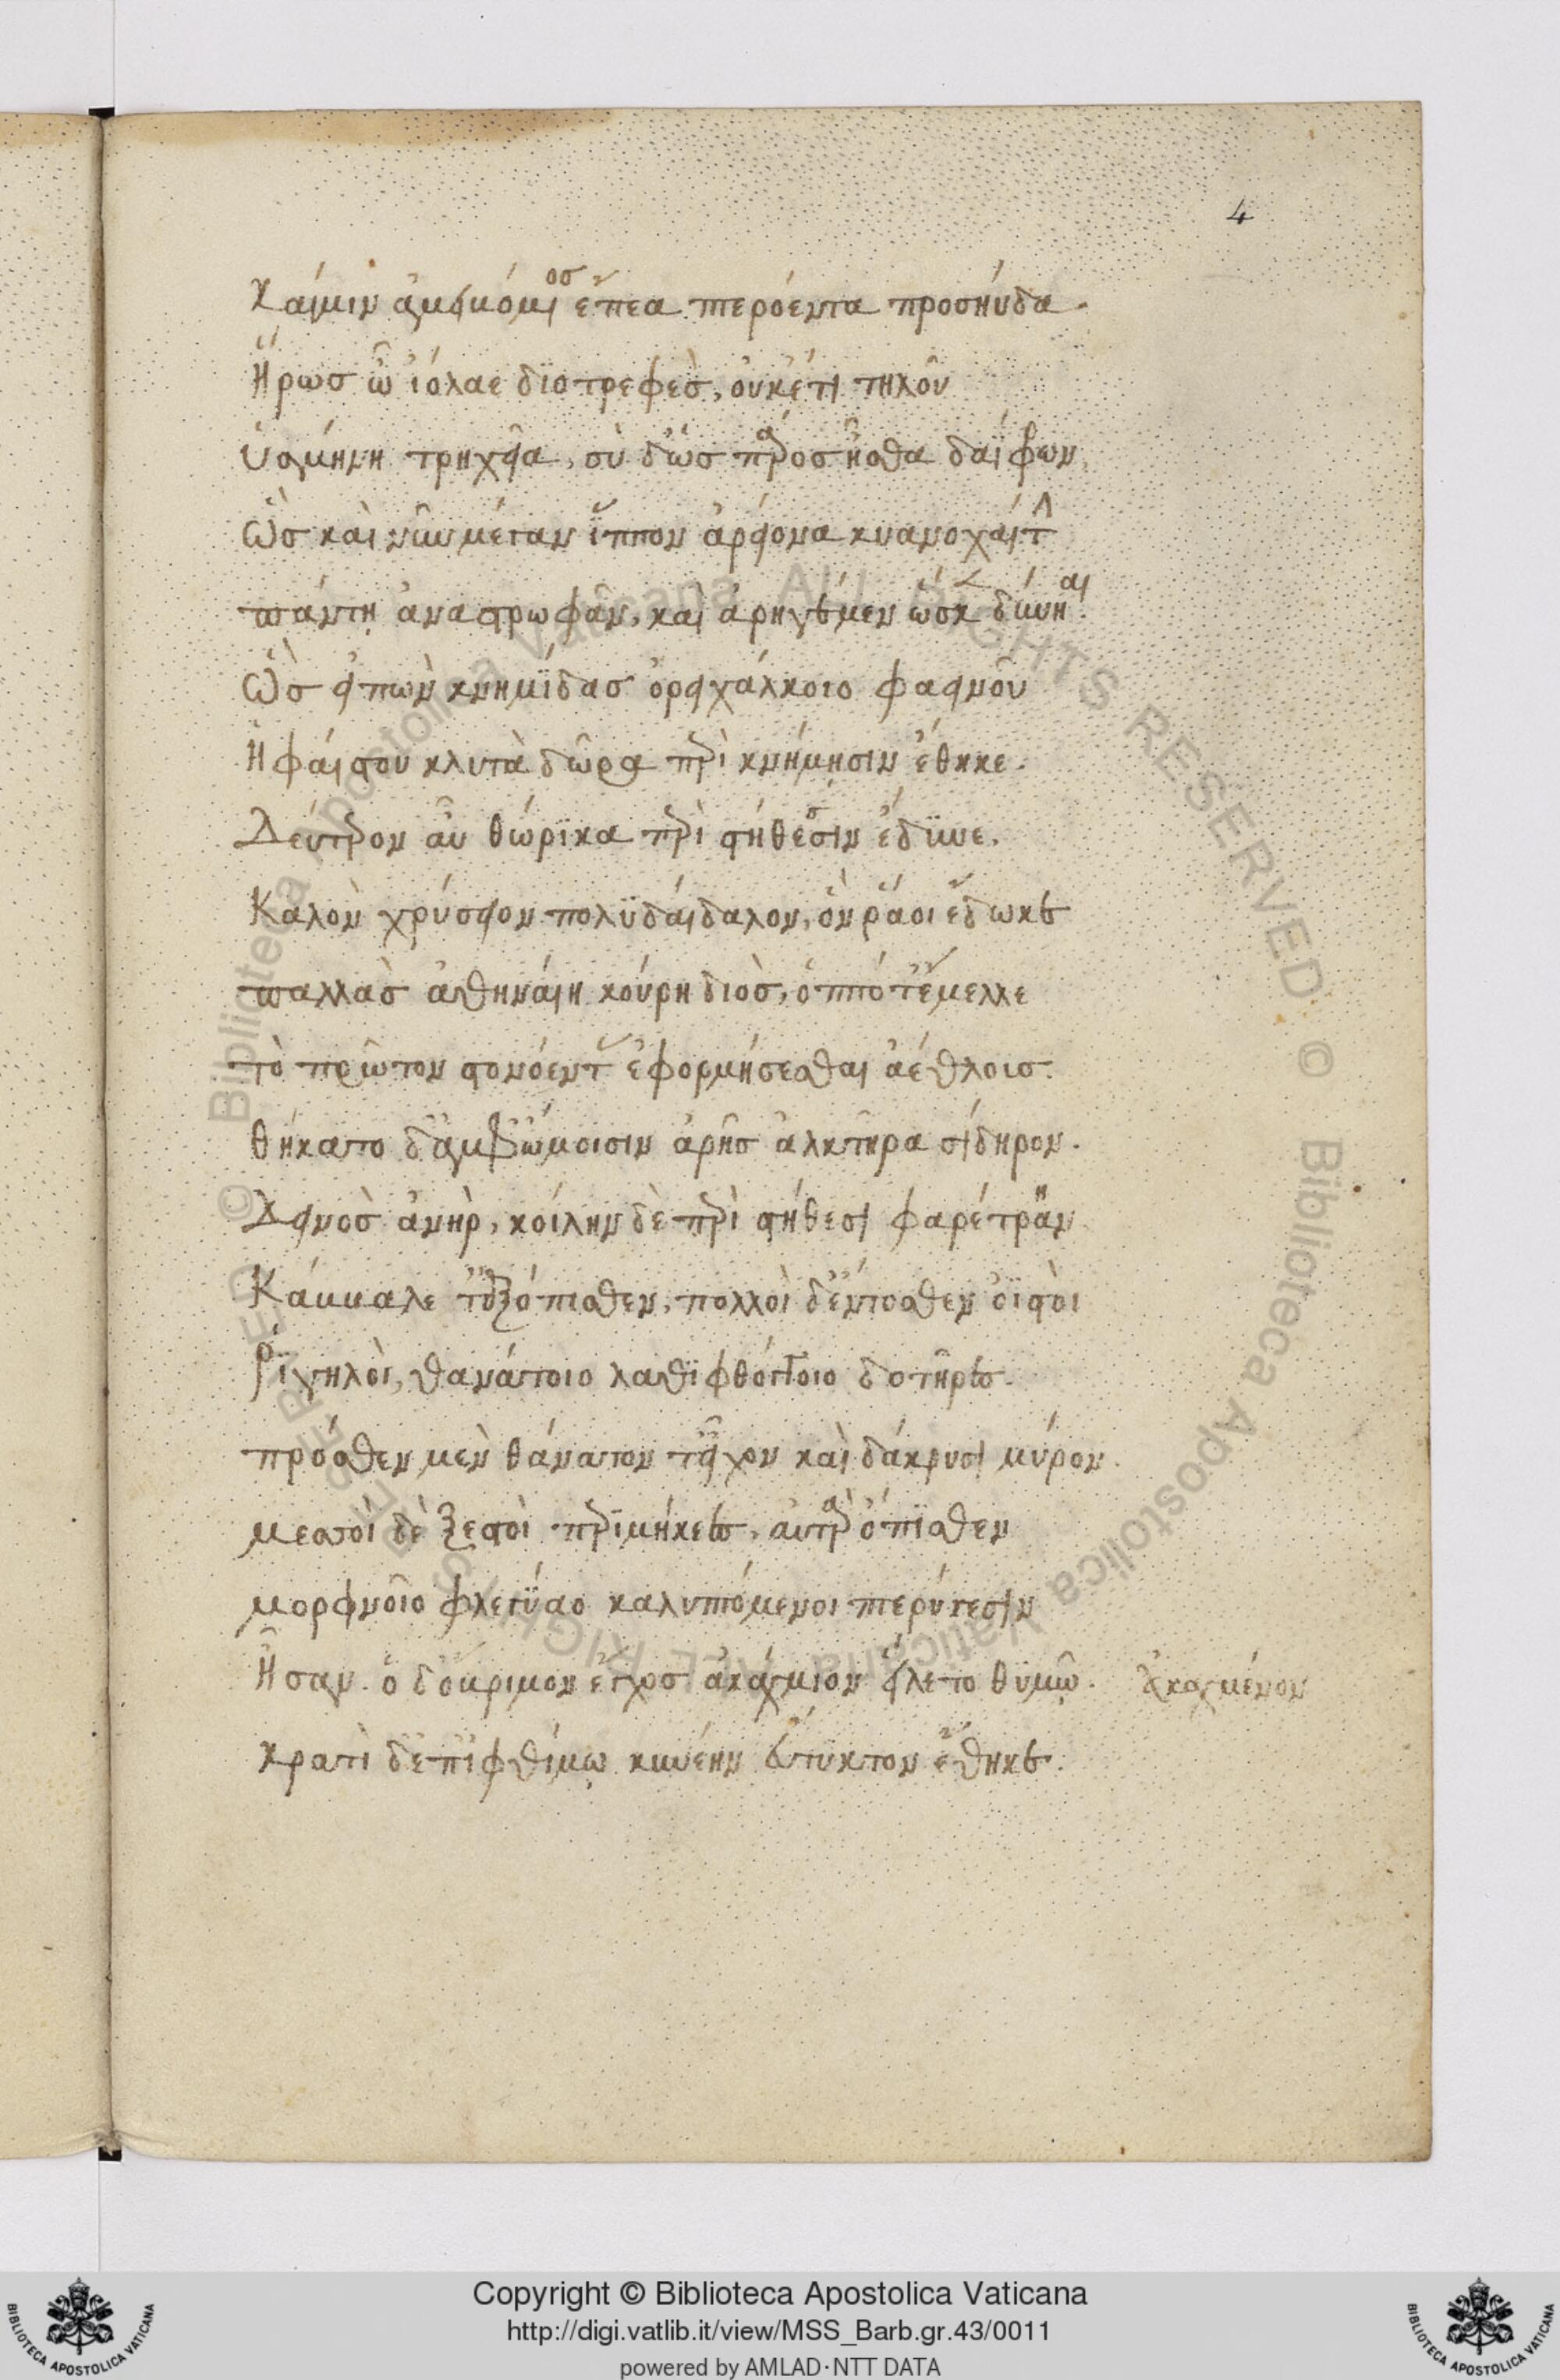 4
Καί μιν ἀμειβόμενος ἔπεα πτερόεντα προσηύδα.
Ἥρωσ ὦ ἰόλαε διοτρεφὲσ, οὐκέτι τηλοῦ
ὑσμίνη τρηχεῖα, σὺ δ' ὡσ πάροσ ἦσθα δαΐφρων,
Ὣσ καὶ νῦν μέγαν ἵππον ἀρείονα κυανοχαίτην
πάντη ἀναστρωφᾶν, καὶ ἀρηγέμεν ὥσ κε δύνηαι.
Ὣσ εἰπὼν κνημίδασ ὀρειχάλκοιο φαεινοῦ
Ἡφαίστου κλυτὰ δῶρα περὶ κνήμησιν ἔθηκε.
Δεύτερον αὖ θώρηκα περὶ στήθεσσιν ἔδυνε.
Καλὸν χρύσειον πολυδαίδαλον, ὅν ῥά οἱ ἔδωκε
παλλὰσ ἀθηναίη κούρη διὸσ, ὁππότ' ἔμελλε
τὸ πρῶτον στονόεντασ ἐφορμήσεσθαι ἀέθλουσ.
θήκατο δ' ἀμφ' ὤμοισιν ἀρῆσ ἀλκτῆρα σίδηρον.
Δεινὸσ ἀνὴρ, κοίλην δὲ περὶ στήθεσι φαρέτρην
Κάββαλε τ' ἐξόπισθεν, πολλοὶ δ' ἔντοσθεν ὀϊστοὶ
ῥιγηλοὶ, θανάτοιο λαθιφθόγγοιο δοτῆρεσ.
πρόσθεν μὲν θάνατον τ' εἶχον καὶ δάκρυσι μύρον.
μεσσοὶ δὲ ξεστοὶ περιμήκεεσ, αὐτὰρ ὄπισθεν
μορφνοῖο φλεγύαο καλυπτόμενοι πτερύγεσσιν
Ἦσαν. ὁ δ' ὄβριμον ἔγχοσ ἀκάχμιον εἵλετο θυμῶ. ἀκαχμένον
κρατὶ δ' ἐπ' ἰφθίμω κυνέην εὔτυκτον ἔθηκε.
Copyright © Biblioteca Apostolica Vaticana
http://digi.vatlib.it/view/MSS_Barb.gr.43/0011
powered by AMLAD·NTT DATA
BIBLIOTECA APOSTOLICA VATICANA
BIBLIOTECA APOSTOLICA VATICANA
© Biblioteca Apostolica Vaticana ALL RIGHTS RESERVED © Biblioteca Apostolica Vaticana ALL RIGHTS RESERVED